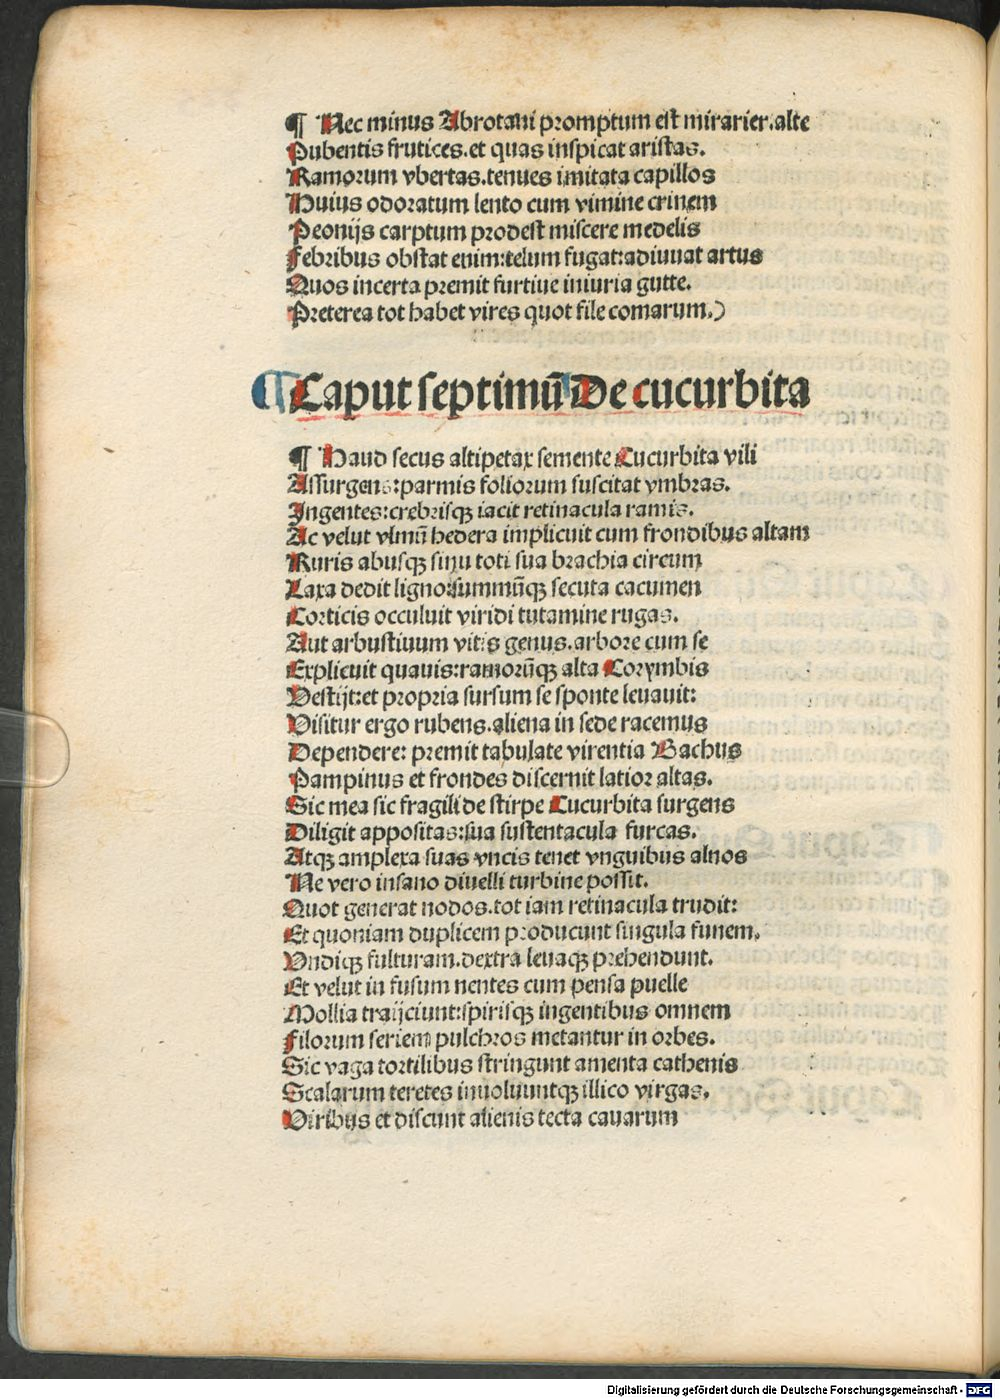 ¶ Nec minus Abrotani promptum est mirarier.alte
Pubentis frutices.et quas inspicat aristas.
Ramorum vbertas.tenues imitata capillos
Huius odoratum lento cum vimine crinem
Peonijs carptum prodest miscere medelis
Febribus obstat enim:telum fugat:adiuuat artus
Quos incerta premit furtiue iniuria gutte.
Preterea tot habet vires quot file comarum.)
¶Caput septimū De cucurbita
¶ Haud secus altipetax semente Cucurbita vili
Assurgens:parmis foliorum suscitat vmbras.
Ingentes:crebrisqꝫ iacit retinacula ramis.
Ac velut vlmū hedera implicuit cum frondibus altam
Ruris abusqꝫ sinu toti sua brachia circum
Laxa dedit ligno:summūqꝫ secuta cacumen
Corticis occuluit viridi tutamine rugas.
Aut arbustiuum vitis genus.arbore cum se
Explicuit quauis:ramorūqꝫ alta Corymbis
Vestijt:et propria sursum se sponte leuauit:
Visitur ergo rubens.aliena in sede racemus
Dependere: premit tabulate virentia Bachus
Pampinus et frondes discernit latior altas.
Sic mea sic fragili de stirpe Cucurbita surgens
Diligit appositas:sua sustentacula furcas.
Atqꝫ amplexa suas vncis tenet vnguibus alnos
Ne vero insano diuelli turbine possit.
Quot generat nodos.tot iam retinacula trudit:
Et quoniam duplicem producunt singula funem.
Vndiqꝫ fulturam.dextra leuaqꝫ prehendunt.
Et velut in fusum nentes cum pensa puelle
Mollia traijciunt:spirisqꝫ ingentibus omnem
Filorum seriem pulchros metantur in orbes.
Sic vaga tortilibus stringunt amenta cathenis
Scalarum teretes inuoluuntqꝫ illico virgas.
Viribus et discunt alienis tecta cauarum
Digitalisierung gefördert durch die Deutsche Forschungsgemeinschaft - DFG